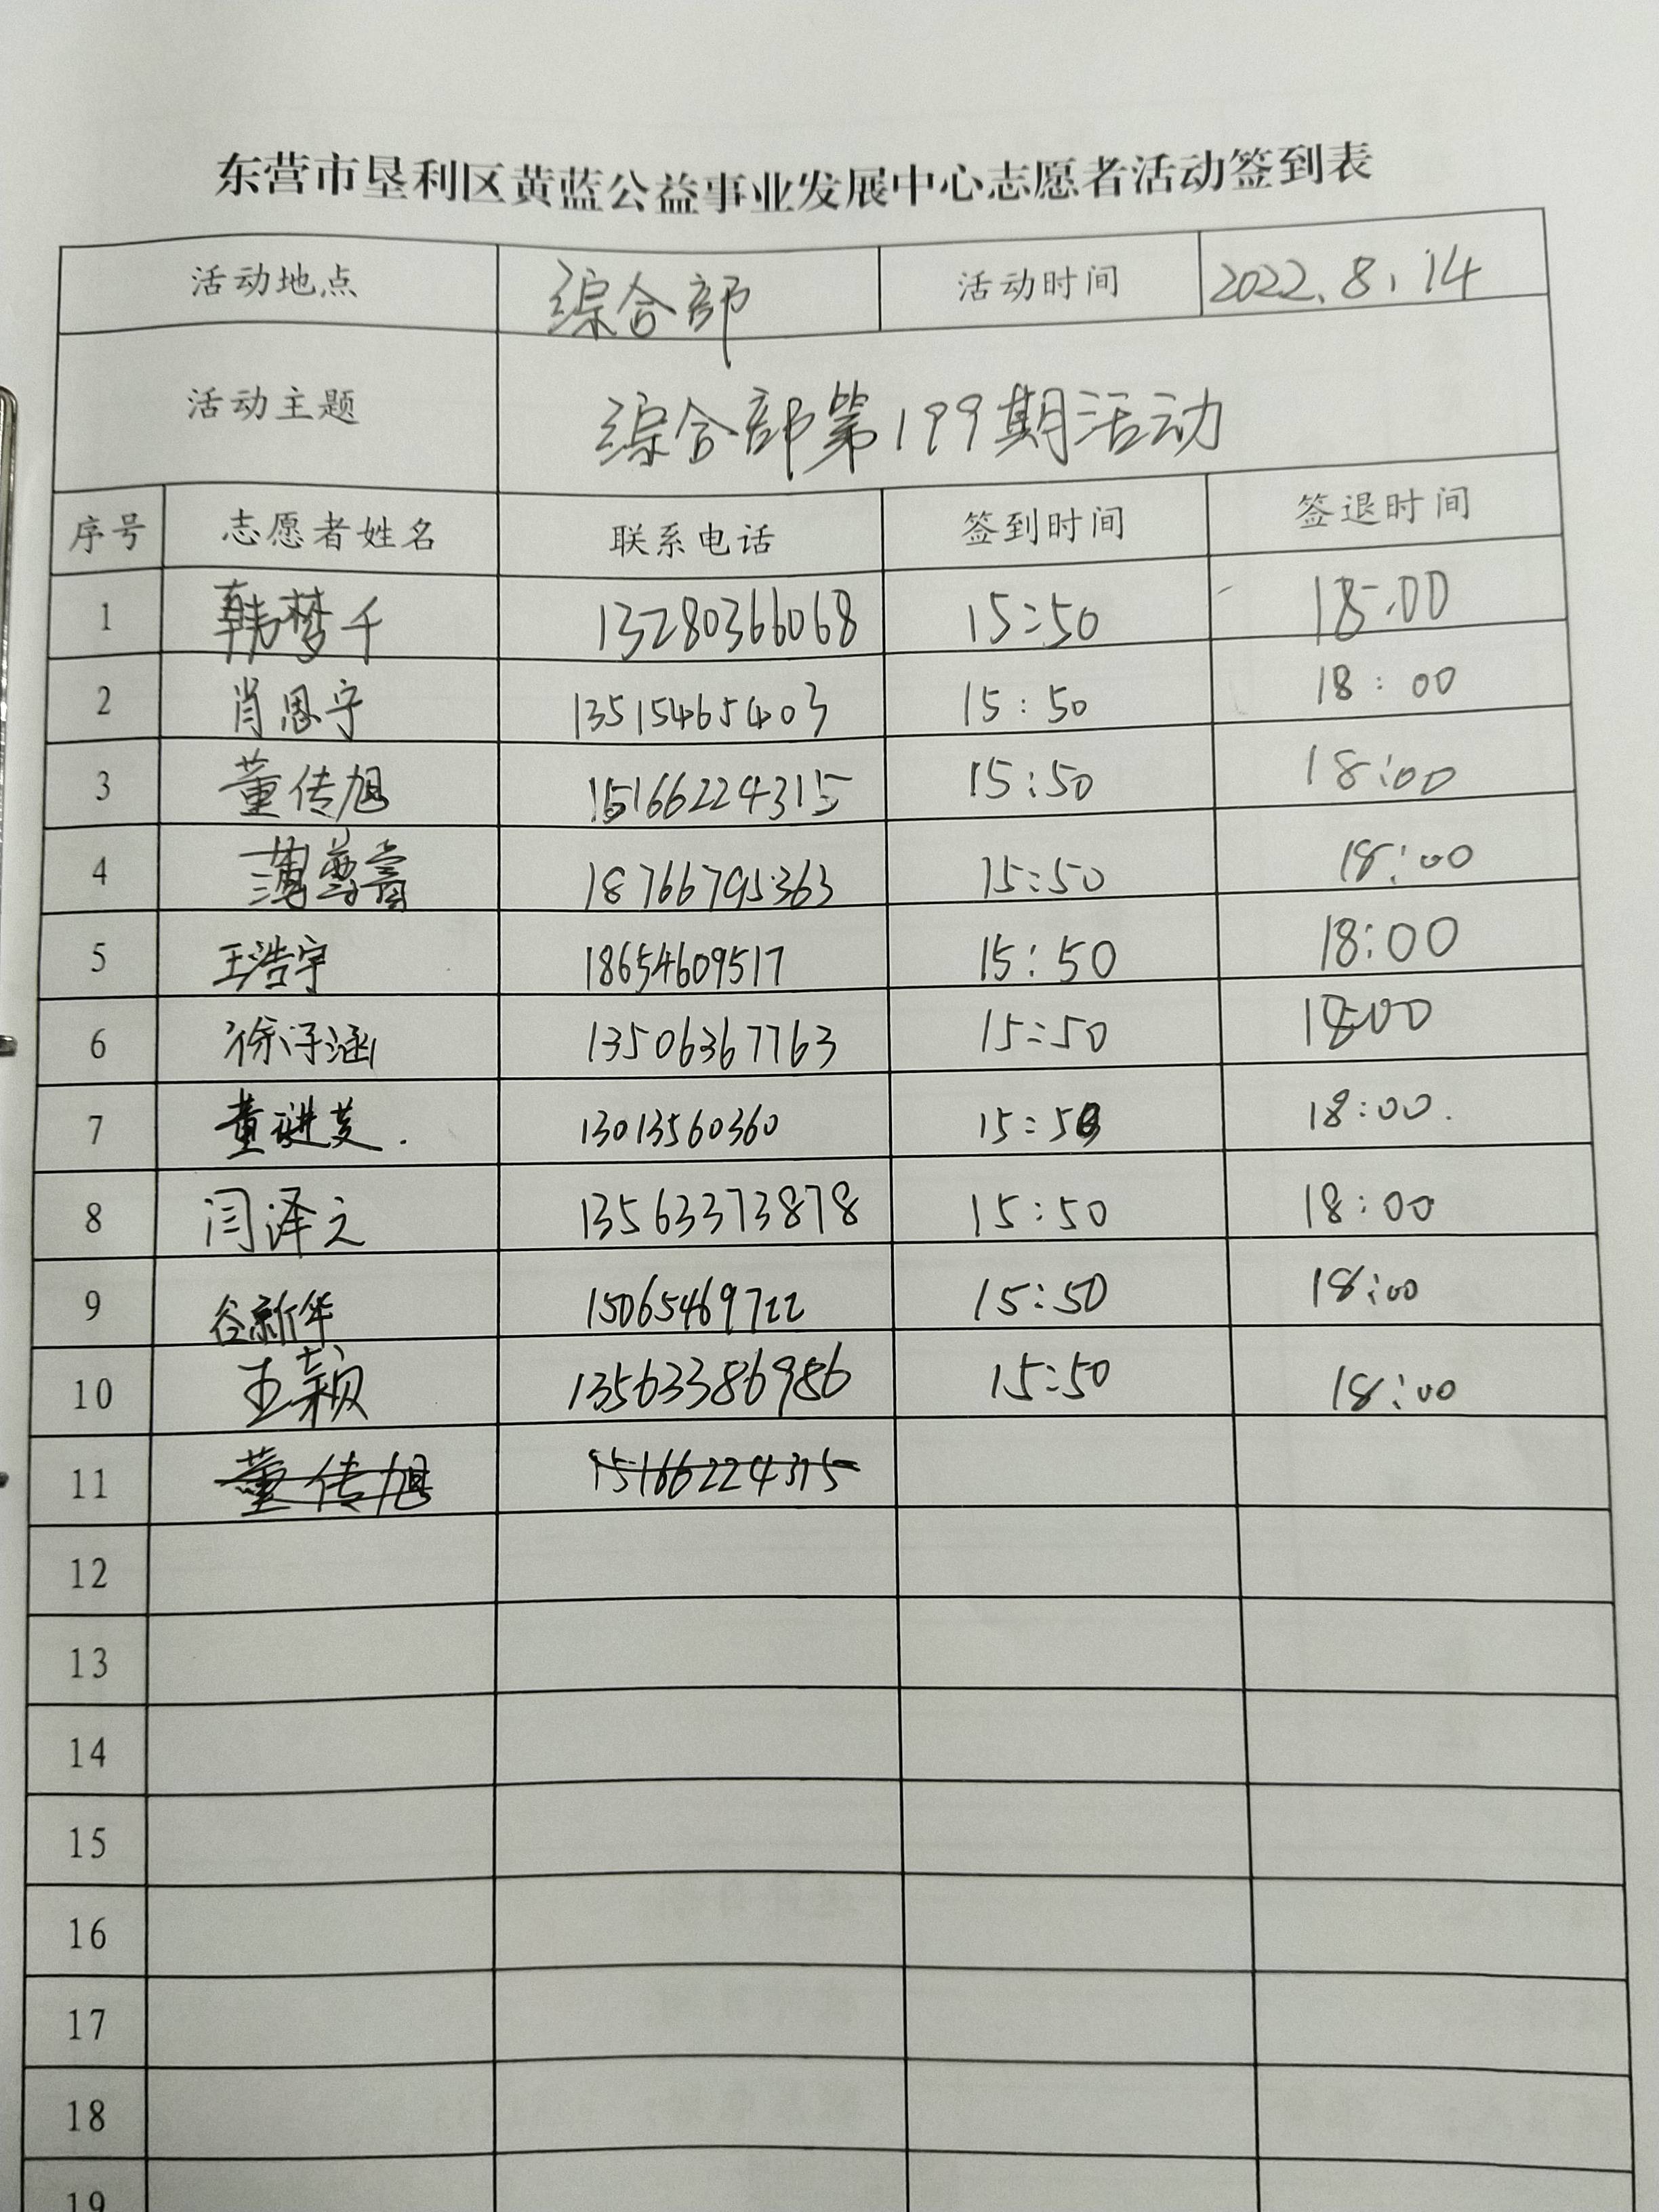 东营市垦利区黄蓝公益事业发展中心志愿者活动签到表
活动地点 综合部 活动时间 2022.8.14
活动主题 综合部第199期活动
序号 志愿者姓名 联系电话 签到时间 签退时间
1 韩梦千 13280366068 15:50 18:00
2 肖恩宁 13515465403 15:50 18:00
3 董传旭 15166224315 15:50 18:00
4 薄尊 18766795363 15:50 18:00
5 王浩宇 18654609517 15:50 18:00
6 徐涵 13506367763 15:50 18:00
7 董进 13013560360 15:50 18:00.
8 闫泽文 13563373878 15:50 18:00
9 谷新华 15065469722 15:50 18:00
10 王颖 13563386986 15:50 18:00
11 董传旭 15166224315
12
13
14
15
16
17
18
19